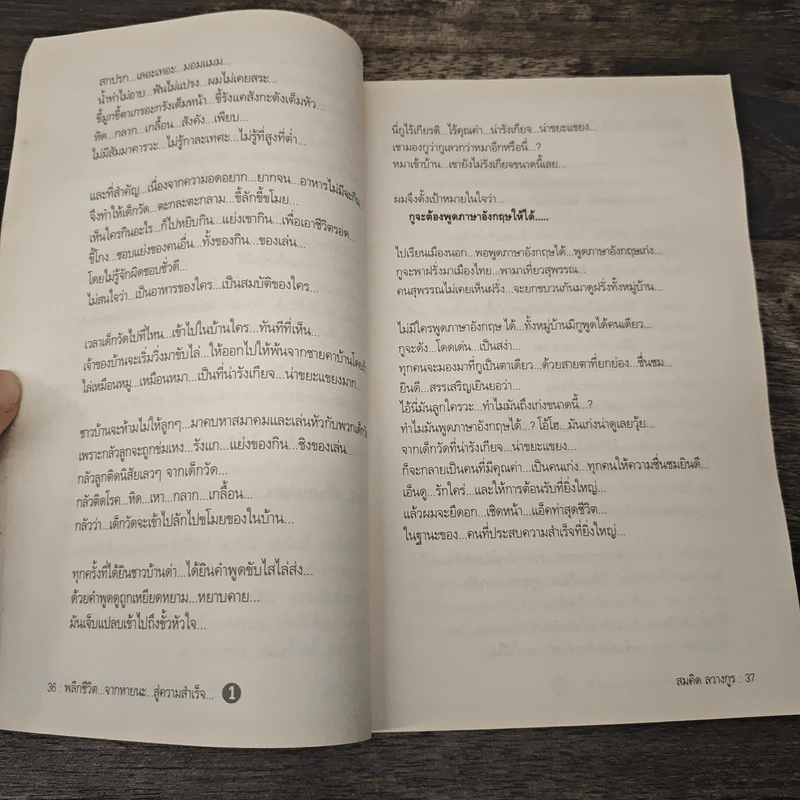 สกปรก...เลอะเทอะ...มอมแมม...
น้ำท่าไม่อาบ...ฟันไม่แปรง...ผมไม่เคยสระ...
ขี้มูกขี้ตาเกรอะกรังเต็มหน้า...ขี้รังแคสังกะตังเต็มหัว
หิด...กลาก...เกลื้อน...สังคัง...เพียบ...
ไม่มีสัมมาคารวะ...ไม่รู้กาละเทศะ...ไม่รู้ที่สูงที่ต่ำ...
และที่สำคัญ...เนื่องจากความอดอยาก...ยากจน...อาหารไม่มีจะกิน
จึงทำให้เด็กวัด...ตะกละตะกลาม...ขี้ลักขี้ขโมย...
เห็นใครกินอะไร...ก็ไปหยิบกิน...แย่งเขากิน...เพื่อเอาชีวิตรอด...
ขี้โกง...ชอบแย่งของคนอื่น...ทั้งของกิน...ของเล่น...
โดยไม่รู้จักผิดชอบชั่วดี...
ไม่สนใจว่า...เป็นอาหารของใคร...เป็นสมบัติของใคร...
เวลาเด็กวัดไปที่ไหน...เข้าไปในบ้านใคร...ทันทีที่เห็น...
เจ้าของบ้านจะเริ่มวิ่งมาขับไล่...ให้ออกไปให้พ้นจากชายคาบ้าน
ไล่เหมือนหมู...เหมือนหมา...เป็นที่น่ารังเกียจ...น่าขยะแขยงมาก...
ชาวบ้านจะห้ามไม่ให้ลูกๆ...มาคบหาสมาคมและเล่นหัวกับพวกเด็กวัด
เพราะกลัวลูกจะถูกข่มเหง...รังแก...แย่งของกิน...ชิงของเล่น...
กลัวลูกติดนิสัยเลวๆ จากเด็กวัด...
กลัวติดโรค...หิด...เหา...กลาก...เกลื้อน...
กลัวว่า...เด็กวัดจะเข้าไปลักไปขโมยของในบ้าน...
ทุกครั้งที่ได้ยินชาวบ้านด่า...ได้ยินคำพูดขับไสไล่ส่ง...
ด้วยคำพูดดูถูกเหยียดหยาม...หยาบคาย...
มันเจ็บแปลบเข้าไปถึงขั้วหัวใจ...
36 : พลิกชีวิต...จากหายนะ...สู่ความสำเร็จ... 1
นี่กูไร้เกียรติ...ไร้คุณค่า...น่ารังเกียจ...น่าขยะแขยง...
เขามองกูว่ากูเลวกว่าหมาอีกหรือนี่...?
หมาเข้าบ้าน...เขายังไม่รังเกียจขนาดนี้เลย...
ผมจึงตั้งเป้าหมายในใจว่า...
กูจะต้องพูดภาษาอังกฤษให้ได้.....
ไปเรียนเมืองนอก...พอพูดภาษาอังกฤษได้...พูดภาษาอังกฤษเก่ง...
กูจะพาฝรั่งมาเมืองไทย...พามาเที่ยวสุพรรณ...
คนสุพรรณไม่เคยเห็นฝรั่ง...จะยกขบวนกันมาดูฝรั่งทั้งหมู่บ้าน...
ไม่มีใครพูดภาษาอังกฤษ ได้...ทั้งหมู่บ้านมีกูพูดได้คนเดียว...
กูจะดัง...โดดเด่น...เป็นสง่า...
ทุกคนจะมองมาที่กูเป็นตาเดียว...ด้วยสายตาที่ยกย่อง...ชื่นชม...
ยินดี...สรรเสริญเยินยอว่า...
ไอ้นี่มันลูกใครวะ...ทำไมมันถึงเก่งขนาดนี้...?
ทำไมมันพูดภาษาอังกฤษได้...? โอ้โฮ...มันเก่งน่าดูเลยวุ้ย...
จากเด็กวัดที่น่ารังเกียจ...น่าขยะแขยง...
ก็จะกลายเป็นคนที่มีคุณค่า...เป็นคนเก่ง...ทุกคนให้ความชื่นชมยินดี...
เอ็นดู...รักใคร่...และให้การต้อนรับที่ยิ่งใหญ่...
แล้วผมจะยืดอก...เชิดหน้า...แอ็คท่าสุดชีวิต...
ในฐานะของ...คนที่ประสบความสำเร็จที่ยิ่งใหญ่...
สมคิด ลวางกูร : 37